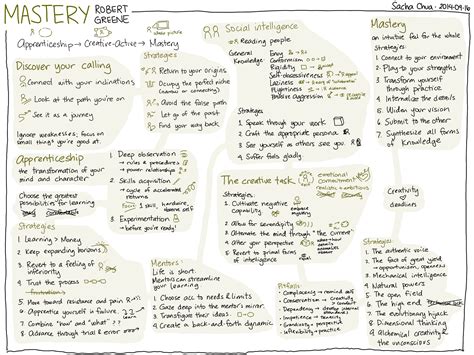 MASTERY ROBERT GREENE
Sacha Chua · 2014-09-16
Apprenticeship → Creative-Active → Mastery
Discover your calling
Connect with your inclinations
Look at the path you're on
See it as a journey
Ignore weaknesses; focus on
small things you're good at.
Strategies
Return to your origins
Occupy the perfect niche
(narrow or connecting)
Avoid the false path
Let go of the past
Find your way back
Social intelligence
Reading people
General
Knowledge
Envy
Conformism
Rigidity
Self-obsessiveness
Laziness
Flightiness
Passive aggression
Strategies
1. Speak through your work
2. Craft the appropriate persona
3. See yourself as others see you
4. Suffer fools gladly
Mastery
an intuitive feel for the whole
Strategies
1. Connect to your environment
2. Play to your strengths
3. Transform yourself
through practice
4. Internalize the details
5. Widen your vision
6. Submit to the other
7. Synthesize all forms
of knowledge
Apprenticeship
the transformation of your
mind and character
Choose the greatest
possibilities for learning
Strategies
1. Learning > Money
2. Keep expanding horizons
3. Revert to a feeling of
inferiority
4. Trust the process
5. Move toward resistance and pain
6. Apprentice yourself in failure
7. Combine "how" and "what"
8. Advance through trial & error
1. Deep observation
→ rules & procedures
→ power relationships
2. Skills acquisition
→ cycle of accelerated
returns
3. Experimentation
→ before you're ready!
Mentors:
Life is short.
Mentors can streamline
your learning
1. Choose acc to needs & limits
2. Gaze deep into the mentor's mirror.
3. Transfigure their ideas.
4. Create a back-and-forth dynamic
The creative task
emotional
commitment
realistic + ambitious
Strategies
1. Cultivate negative
capability
embrace
mystery
2. Allow for serendipity
3. Alternate the mind through "the current"
4. Alter your perspective
5. Revert to primal forms
of intelligence
Pitfalls
Complacency
Conservatism
Dependency
Impatience
Grandiosity
Inflexibility
Creativity
deadlines
Strategies
1. The authentic voice
2. The fact of great yield
3. Mechanical intelligence
4. Natural powers
5. The open field
6. The high end
7. The evolutionary hijack
8. Dimensional thinking
9. Alchemical creativity &
the unconscious